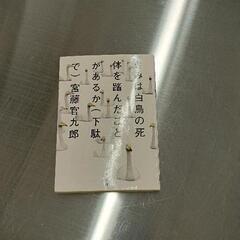 は白鳥の死
体を踏んだこと
があるか(下駄
で) 宮藤官九郎